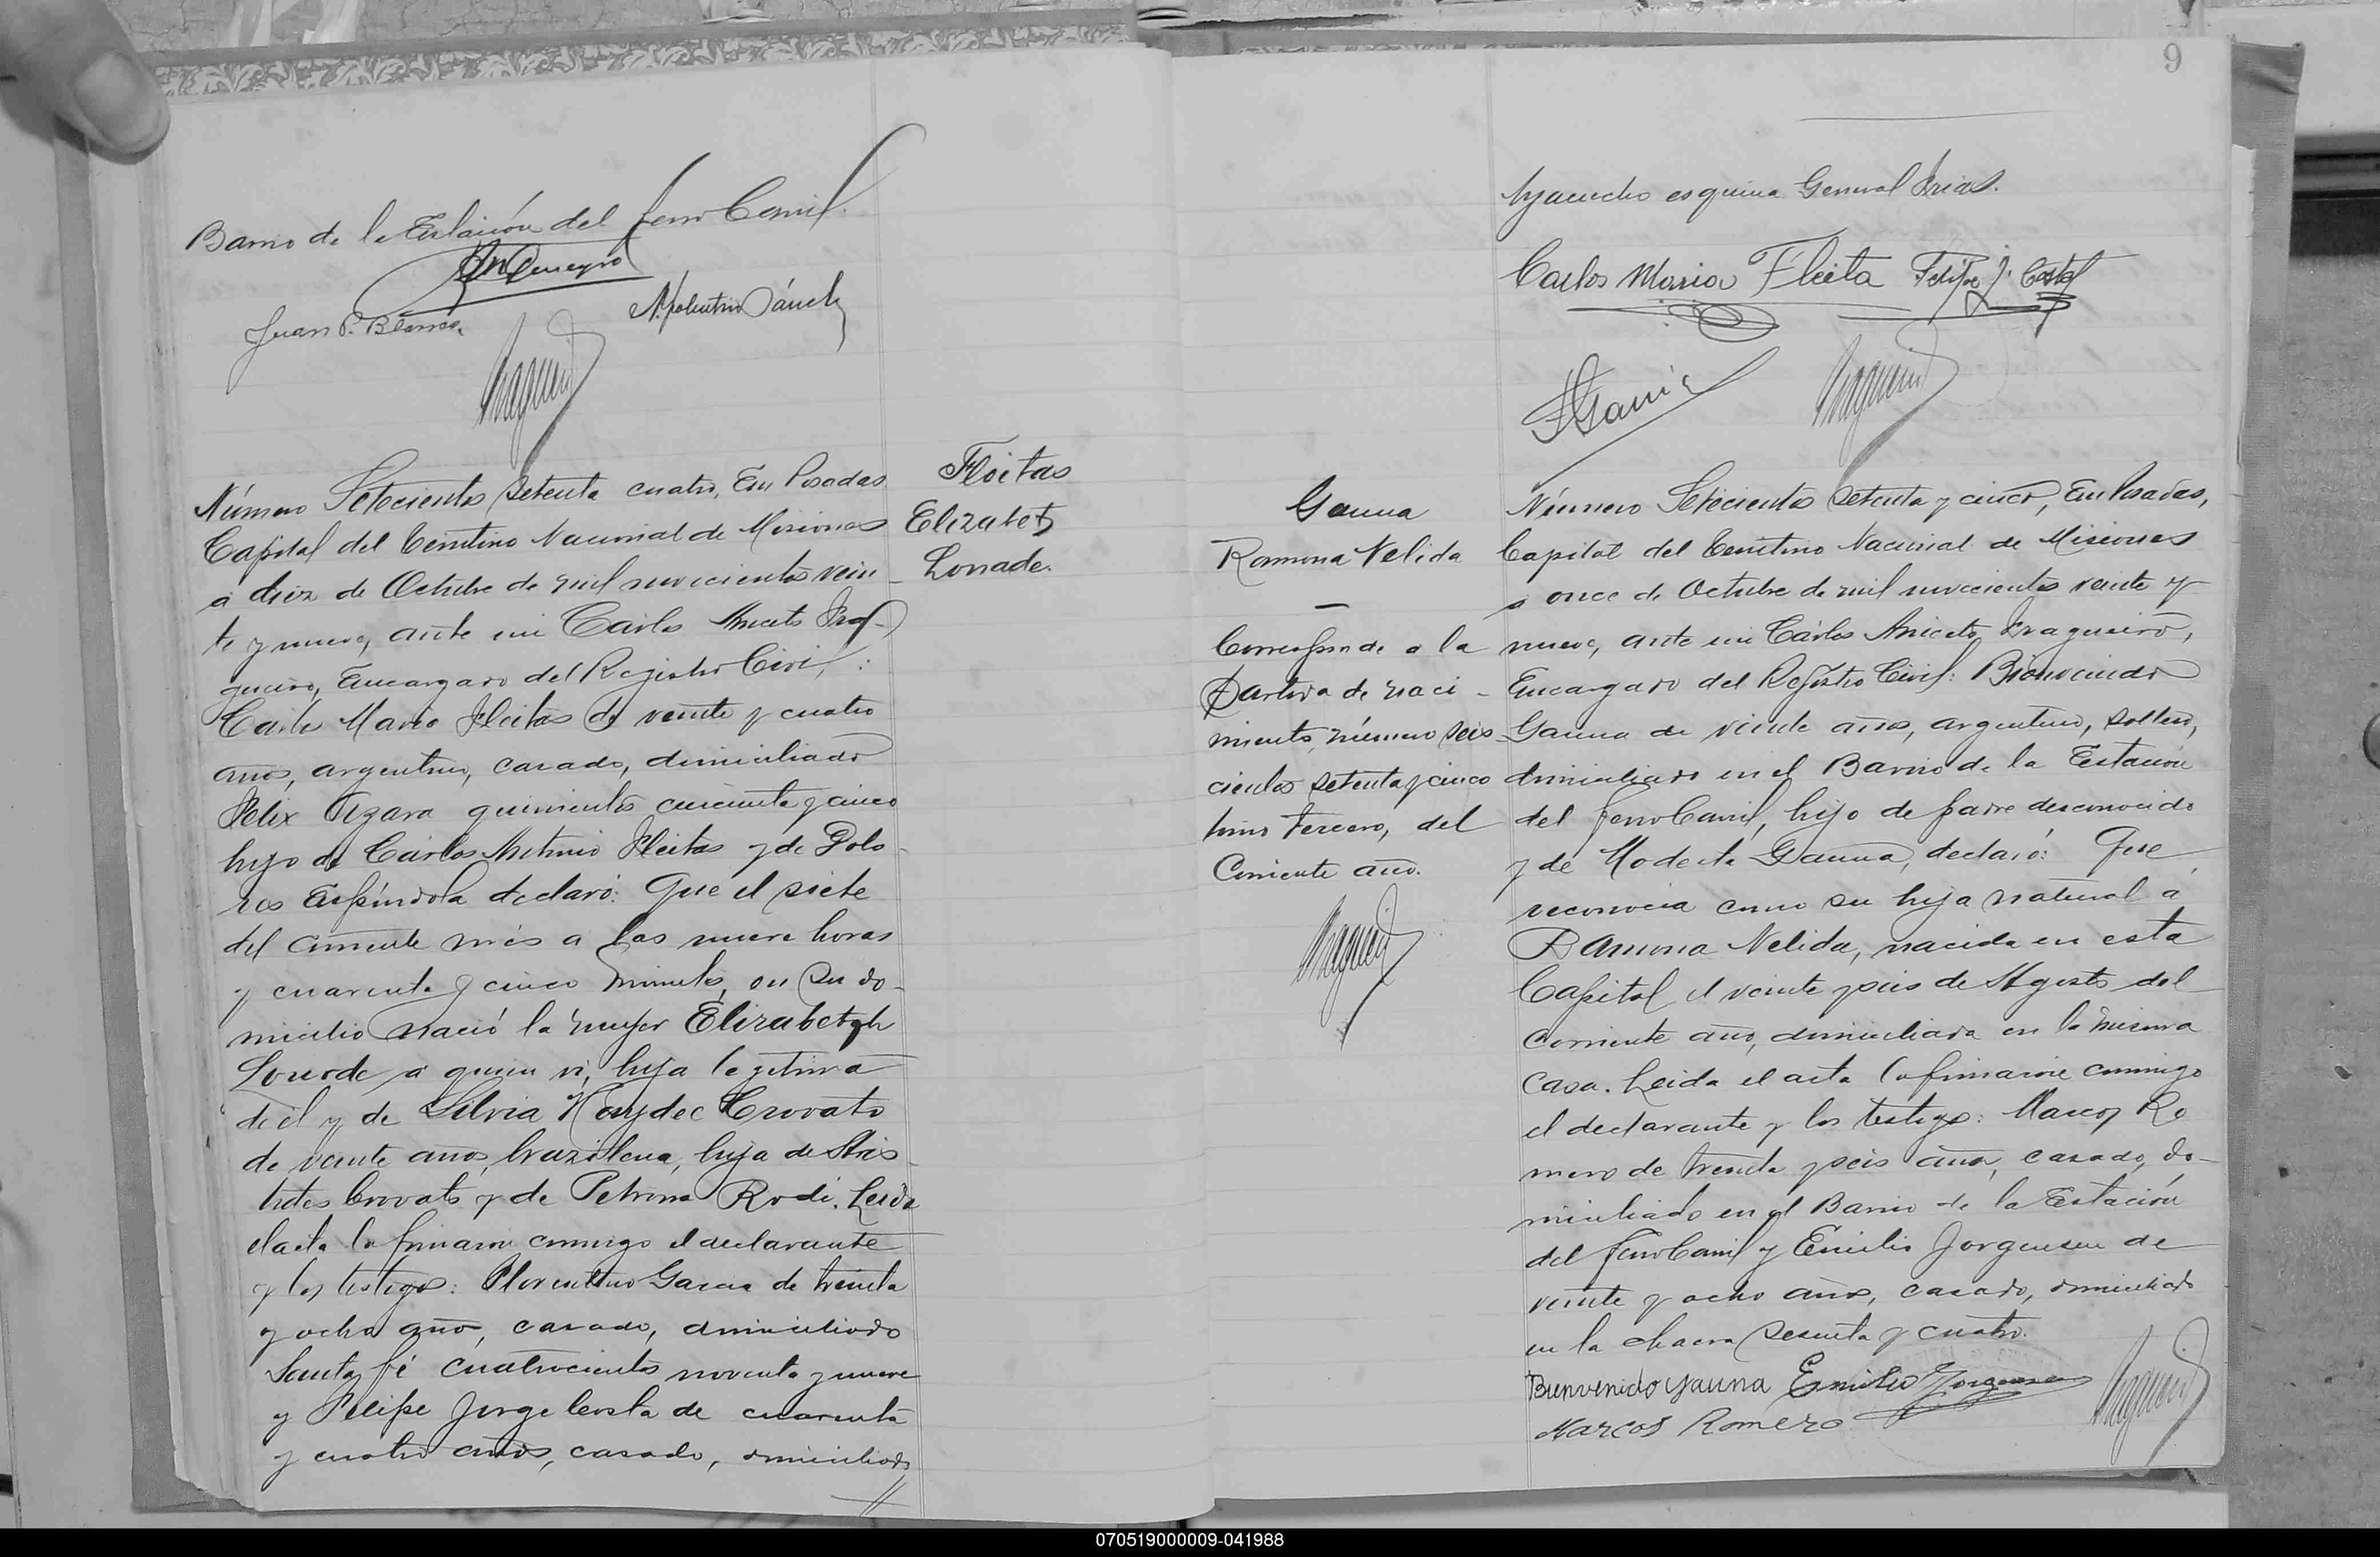 Barrio de la Estación del Ferro Carril.
Juan P. Blanco
Número Setecientos setenta cuatro, En Posadas
Capital del Territorio Nacional de Misiones
a diez de Octubre de mil novecientos vein
te y nueve, ante mi Carlos Aniceto Fra-
gueiro, Encargado del Registro Civil, :
Carlos Mario Fleitas de veinte y cuatro
años, argentino, casado, domiciliado
Felix Azara quinientos cincuenta y cinco
hijo de Carlos Antonio Fleitas y de Dolo-
res Espíndola declaró: Que el siete
del corriente mes a las nueve horas
y cuarenta y cinco minutos, en su do-
micilio nació la mujer Elizabetgh
Lourde a quien vi, hija legitima
de él y de Silvia Haydee Crovato
de veinte años, brazilena, hija de Aris-
tides Crovato y de Petrona Rodi. Leida
el acta la firmaron conmigo el declarante
y los testigos: Florentino Garcia de treinta
y ocho año, casado, domiciliado
Santa fé cuatrocientos noventa y nueve
y Felipe Jorge Costa de cuarenta
y cuatro años, casado, domiciliado
Fleitas
Elizabet
9
Ayacucho esquina General Frias.
Carlos Mario Fleita Felipe J. Costa
F Garcia
Gauna
Ramona Nelida
Corresponde a la
Partida de naci-
miento, número seis
cientos setenta y cinco
tomo tercero, del
Corriente año.
Número Setecientos setenta y cinco, En Posadas,
Capital del Territorio Nacional de Misiones
a once de Octubre de mil novecientos veinte y
nueve, ante mi Cárlos Aniceto Fragueiro,
Encargado del Registro Civil: Bienvenido
Gauna de veinte años, argentino, soltero,
domiciliado en el Barrio de la Estación
del Ferro Carril, hijo de padre desconocido
y de Modesta Gauna, declaró: Que
reconocia como su hija natural a
Ramona Nelida, nacida en esta
Capital el veinte y seis de Agosto del
corriente año, domiciliada en la misma
casa. Leida el acta la firmaron conmigo
el declarante y los testigos: Marcos Ro
mero de treinta y seis años, casado, do-
miciliado en el Barrio de la Estación
del Ferro Carril y Emilio Jorgensen de
veinte y ocho años, casado, domiciliado
en la chacra sesenta y cuatro.
Bienvenido Gauna Emilio Jorgensen
Marcos Romero
070519000009-041988